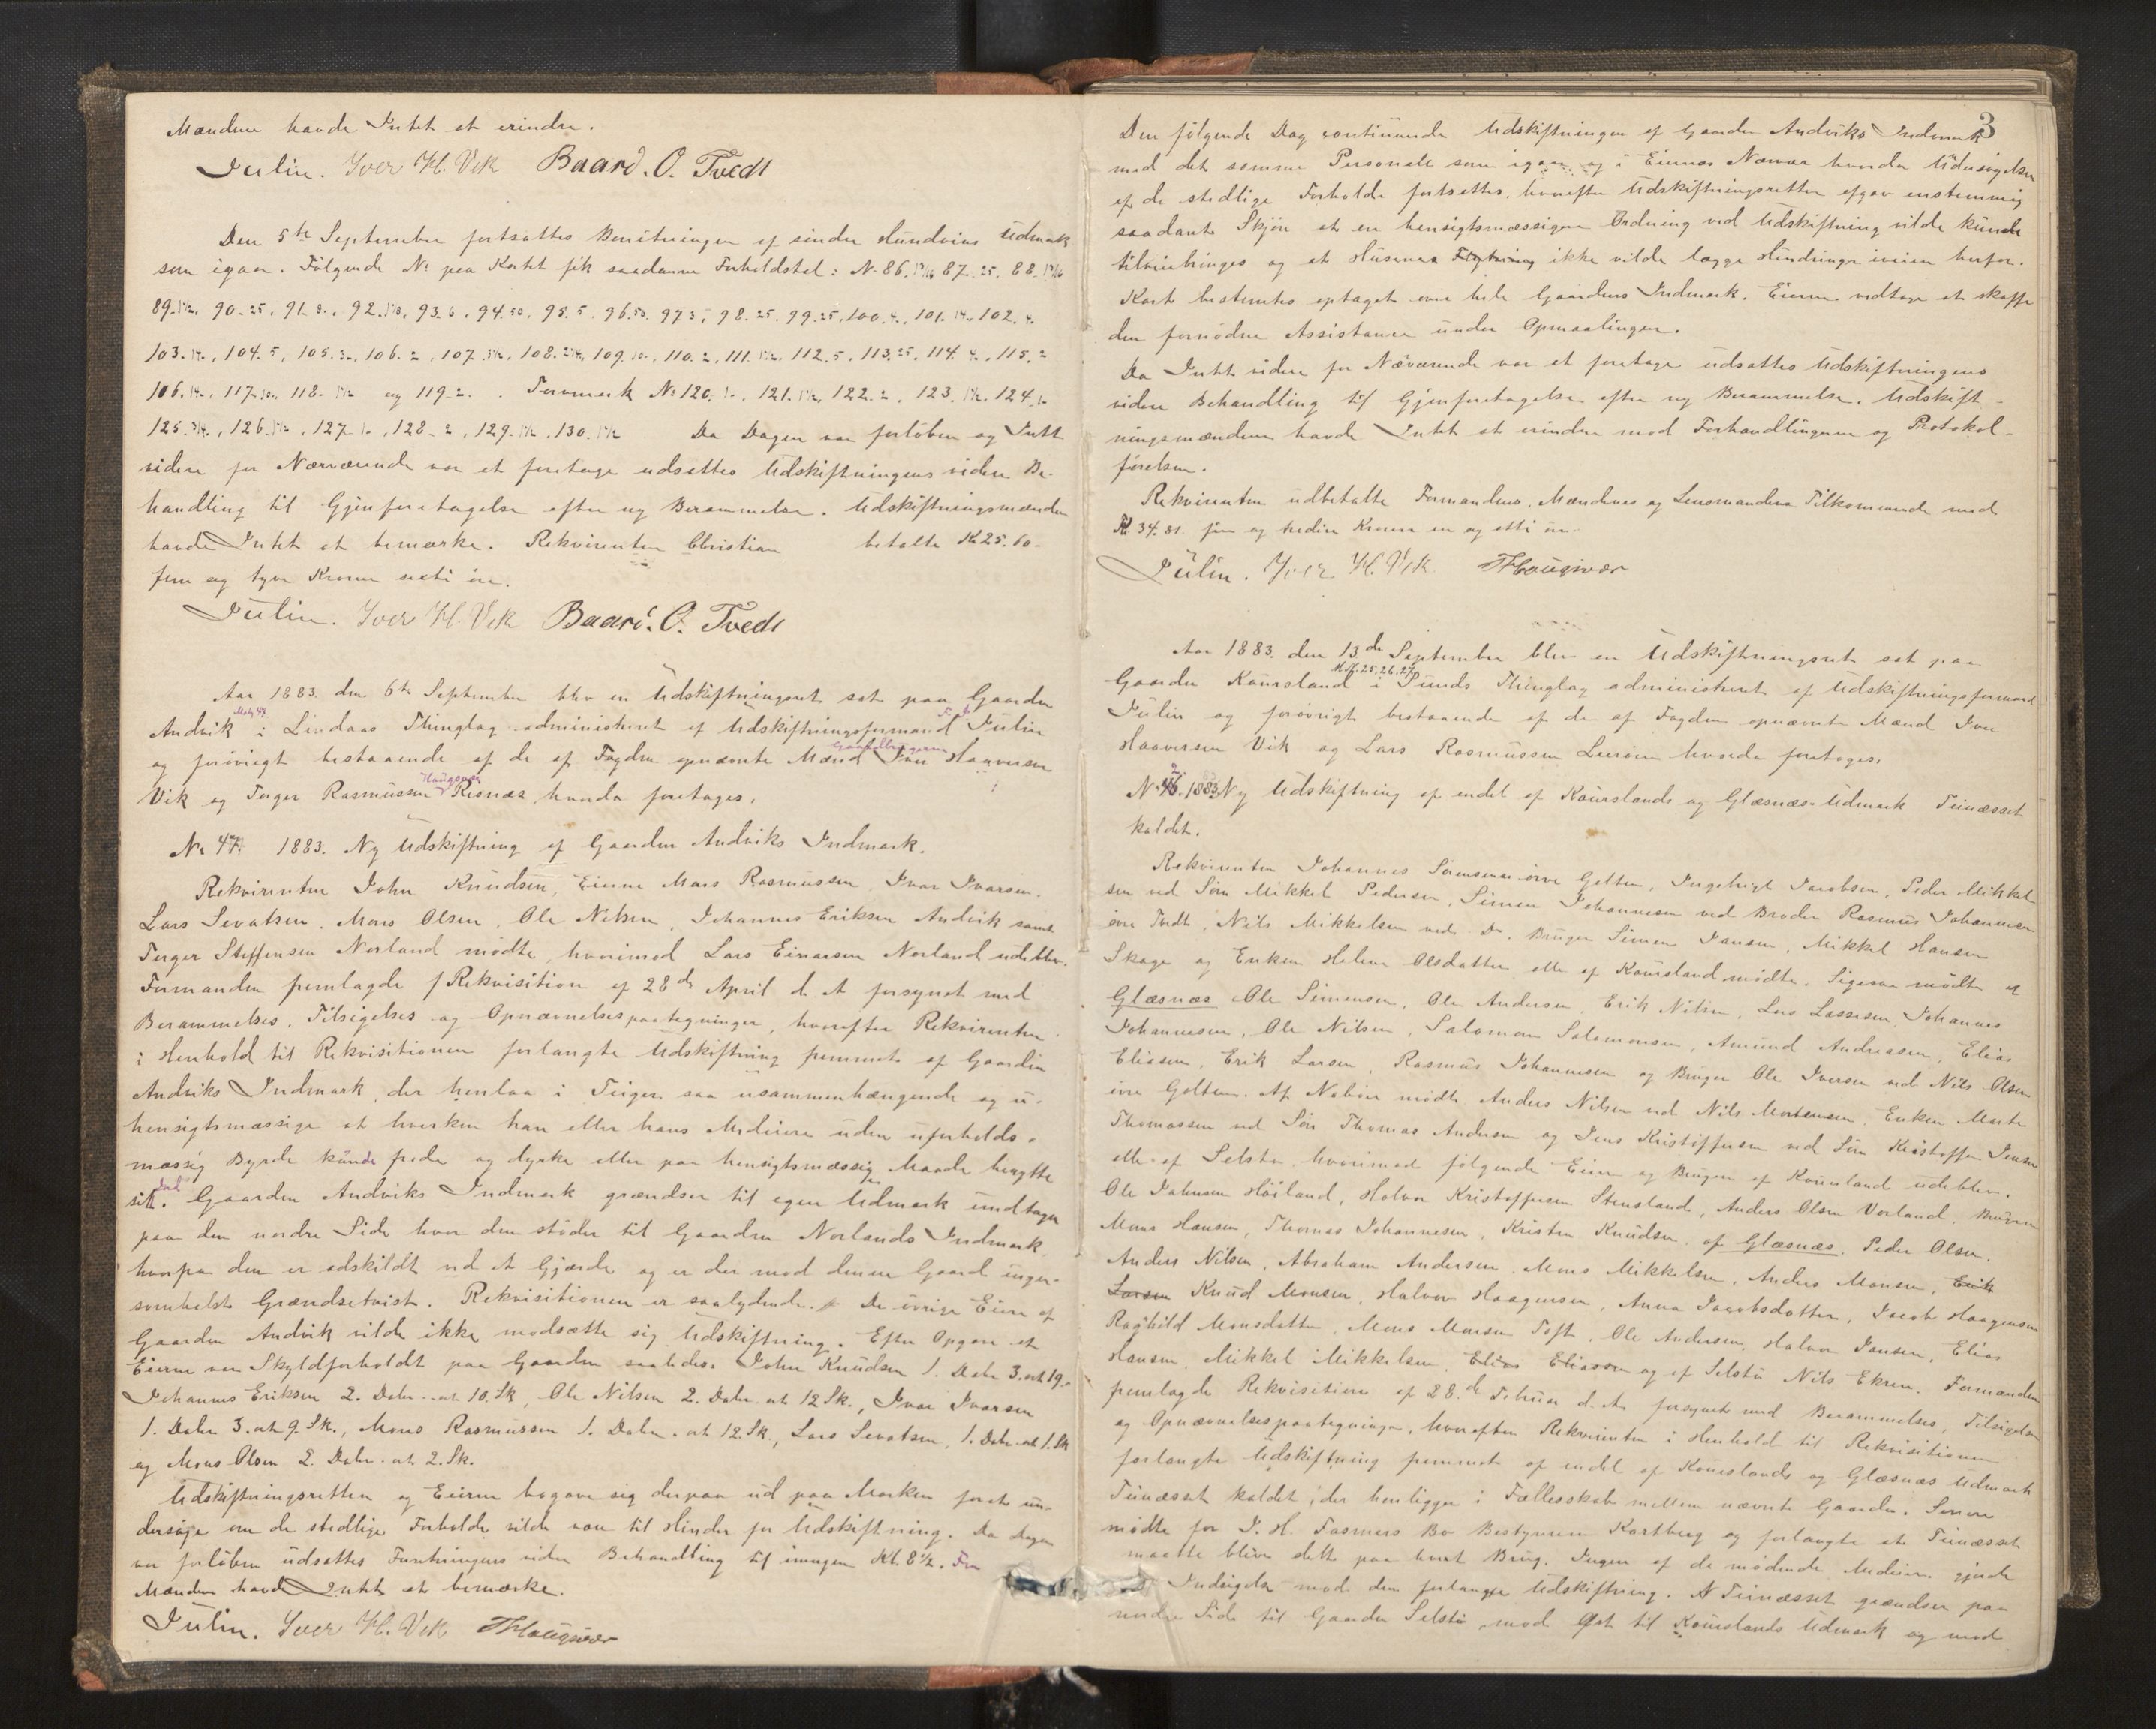 Mændene havde Intet at erindre.
Julin. Iver H. Vik Baard. O. Tvedt
Den 5te September fortsattes Boniteringen af søndre Hundvins Udmark
som igaar. Følgende No paa Kartet fik saadanne Forholdstal: No 86. 87. 25. 88.
89. 90. 25, 91. 8., 92. 93. 6, 94. 50, 95. 5. 96. 50. 97 5, 98. 25. 99. 25, 100. 4., 101. 102. 4.
103. 104. 5, 105. 106. 2, 107. 108. 109. 110. 2, 111. 112. 5, 113. 25. 114. 4., 115. 2
106. 117. 118. og 119. 2. Torvmark No 120. 121. 122. 2, 123. 124.
125. 126. 127. 128. 2, 129. 130. Da Dagen var forløben og Intet
videre for Nærværende var at foretage udsattes Udskiftningens videre Be-
handling til Gjenforetagelse efter ny Berammelse. Udskiftningsmændene
havde Intet at bemærke. Rekvirenten Christian betalte Kr 25. 60.
fem og tyve Kroner sexti øre.
Julin. Iver H. Vik Baard. O. Tvedt
Aar 1883. den 6te September blev en Udskiftningsret sat paa Gaarden
Andvik i Lindaas Thinglag administreret af Udskiftningsformand Julin
og forøvrigt bestaaende af de af Fogden opnævnte Mænd Iver Haaversen
Vik og Torger Rasmussen Haugsvær Risnæs, hvorda foretoges,
No 47. 1883. Ny Udskiftning af Gaarden Andviks Indmark.
Rekvirenten John Knudsen, Eierne Mons Rasmussen, Ivar Ivarsen.
Lars Sevatsen, Mons Olsen, Ole Nilsen, Johannes Eriksen Andvik samt
Torger Steffensen Norland mødte, hvorimod Lars Einarsen Norland udeblev.
Formanden fremlagde Rekvisition af 28de April d. A. forsynet med
Berammelses, Tilsigelses og Opnævnelsespaategninger, hvorefter Rekvirenten
i Henhold til Rekvisitionen forlangte Udskiftning fremmet af Gaarden
Andviks Indmark, der henlaa i Teiger saa usammenhængende og u-
hensigtsmæssige at hverken han eller hans Medeiere uden uforholds-
mæssig Byrde kunde frede og dyrke eller paa hensigtsmæssig Maade benytte
sit. Gaarden Andviks Indmark grændser til egen Udmark undtagen
paa den nordre Side hvor den støder til Gaarden Norlands Indmark,
hvorfra den er adskildt ved et Gjærde og er der mod denne Gaard ingen-
somhelst Grændsetvist. Rekvisitionen er saalydende. De øvrige Eiere af
Gaarden Andvik vilde ikke modsætte sig Udskiftning. Efter Opgave at
Eierne var Skyldforholdt paa Gaarden saaledes: John Knudsen 1. Daler 3. ort 19.
Johannes Eriksen 2. Daler - ort 10. Sk, Ole Nilsen 2. Daler - ort 12 Sk., Ivar Ivarsen
1. Daler 3. ort 9. Sk., Mons Rasmussen 1. Daler - ort 12. Sk., Lars Sevatsen, 1. Daler - ort 1. Sk
og Mons Olsen 2. Daler - ort 2. Sk.
Udskiftningsretten og Eierne begave sig derpaa ud paa Marken forat un-
dersøge om de stedlige Forholde vilde være til Hinder for Udskiftning. Da Dagen
var forløben udsattes Forretningens videre Behandling til imorgen Kl. 8 ½.
Mændene havde Intet at bemærke.
Julin. Iver H. Vik THaugsvær
3
Den følgende Dag continuerede Udskiftningen af Gaarden Andviks Indmark
med det samme Personale som igaar og i Eiernes Nærvær hvorda Undersøgelsen
af de stedlige Forholde fortsattes, hvorefter Udskiftningsretten afgav enstemmig
saadant Skjøn at en hensigtsmæssigere Ordning ved Udskiftning vilde kunde
tilveiebringes og at Husenes Flytning ikke vilde lægge Hindringer iveien herfor.
Kart bestemtes optaget over hele Gaardens Indmark. Eierne vedtoge at skaffe
den fornødne Assistance under Opmaalingen.
Da Intet videre for Nærværende var at foretage udsattes Udskiftningens
videre Behandling til Gjenforetagelse efter ny Berammelse. Udskift-
ningsmændene havde Intet at erindre mod Forhandlingerne og Protokol-
førelsen.
Rekvirenten udbetalte Formandens, Mændenes og Lensmandens Tilkommende med
Kr 34. 81. fire og tredive Kroner en og otti øre.
Julin. Iver H. Vik THaugsvær
Aar 1883. den 13de September blev en Udskiftningsret sat paa
M.N. 25, 26, 27
Gaarden Kaursland i Sunds Thinglag administreret af Udskiftningsformand
Julin og forøvrigt bestaaende af de af Fogden opnævnte Mænd Iver
Haaversen Vik og Lars Rasmussen Lerøen hvorda foretoges,
No 46. 1883. Ny Udskiftning af endel af Kaurslands og Glæsnæs Udmark Teinæsset
kaldet.
Rekvirenten Johannes Sørensen øvre Golten, Ingebrigt Jacobsen, Peder Mikkel
sen ved Søn Mikkel Pedersen, Simen Johannesen ved Broder Rasmus Johannesen
øvre Tvedt, Nils Mikkelsen ved Do. Bruger Simen Jansen, Mikkel Hansen
Skage og Enken Helene Olsdatter, alle af Kaursland mødte. Ligesaa mødte af
Glæsnæs Ole Simonsen, Ole Andersen, Erik Nilsen, Lars Lassesen, Johannes
Johannesen, Ole Nilsen, Salomon Salomonsen, Amund Andreasen, Elias
Eliasen, Erik Larsen, Rasmus Johannesen og Bruger Ole Iversen ved Nils Olsen
øvre Golten. Af Naboer mødte Anders Nilsen ved Nils Mortensen, Enken Marte
Thomassen ved Søn Thomas Andersen og Jens Kristoffersen ved Søn Kristoffer Jensen
alle af Selstø, hvorimod følgende Eiere og Brugere af Kaursland udeblev.
Ole Johnsen Høiland, Halvor Kristoffersen Stensland, Anders Olsen Vorland, Brugerne
Mons Hansen, Thomas Johannesen, Kristen Knudsen, af Glæsnæs. Peder Olsen.
Anders Nilsen, Abraham Andersen, Mons Mikkelsen, Anders Monsen, Erik
Larsen Knud Monsen, Halvor Haagensen, Anna Jacobsdatter, Jacob Haagensen
Raghild Monsdatter, Mons Monsen Toft, Ole Andersen, Halvor Jansen, Elias
Hansen, Mikkel Mikkelsen, Elias Eliassen og af Selstø Nils Ekren. Formanden
fremlagde Rekvisition af 28de Februar d. A. forsynet med Berammelses, Tilsigelses
og Opnævnelsespaategninger, hvorefter Rekvirenten i Henhold til Rekvisitionen
forlangte Udskiftning fremmet af endel af Kaurslands og Glæsnæs Udmark
Teinæsset kaldet, der henligger i Fællesskab mellem nævnte Gaarde. Senere
mødte for J. H. Fasmers Bo Bestyreren Kartberg og forlangte at Teinæsset
maatte blive delt paa hvert Brug. Ingen af de mødende Medeiere gjorde
Indsigelse mod den forlangte Udskiftning. Teinæsset grændser paa
nordre Side til Gaarden Selstø, mod Øst til Kaurslands Udmark og mod